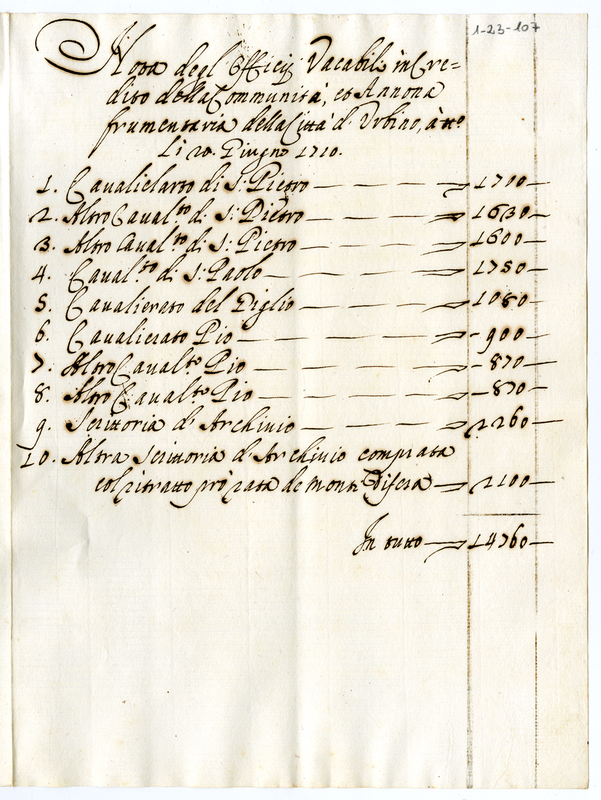 1-23-107
Nota degl'Officij Vacabili in Cre=
dito della Communità, et Annona
frumentaria della Città d'Urbino, à tt.º
Li 20. Giugno 1710.
1. Cavalierato di S: Pietro — 1700 —
2. Altro Caval.to di S: Pietro — 1630 —
3. Altro Caval.to di S: Pietro — 1600 —
4. Caval.to di S: Paolo — 1750 —
5. Cavalierato del Giglio — 1080 —
6. Cavalierato Pio — 900 —
7. Altro Caval.to Pio — 870 —
8. Altro Caval.to Pio — 870 —
9. Scrittoria d'Archivio — 2260 —
10. Altra Scrittoria d'Archivio comprata
col ritratto prò rata de Monti — 2100 —
In tutto — 14760 —